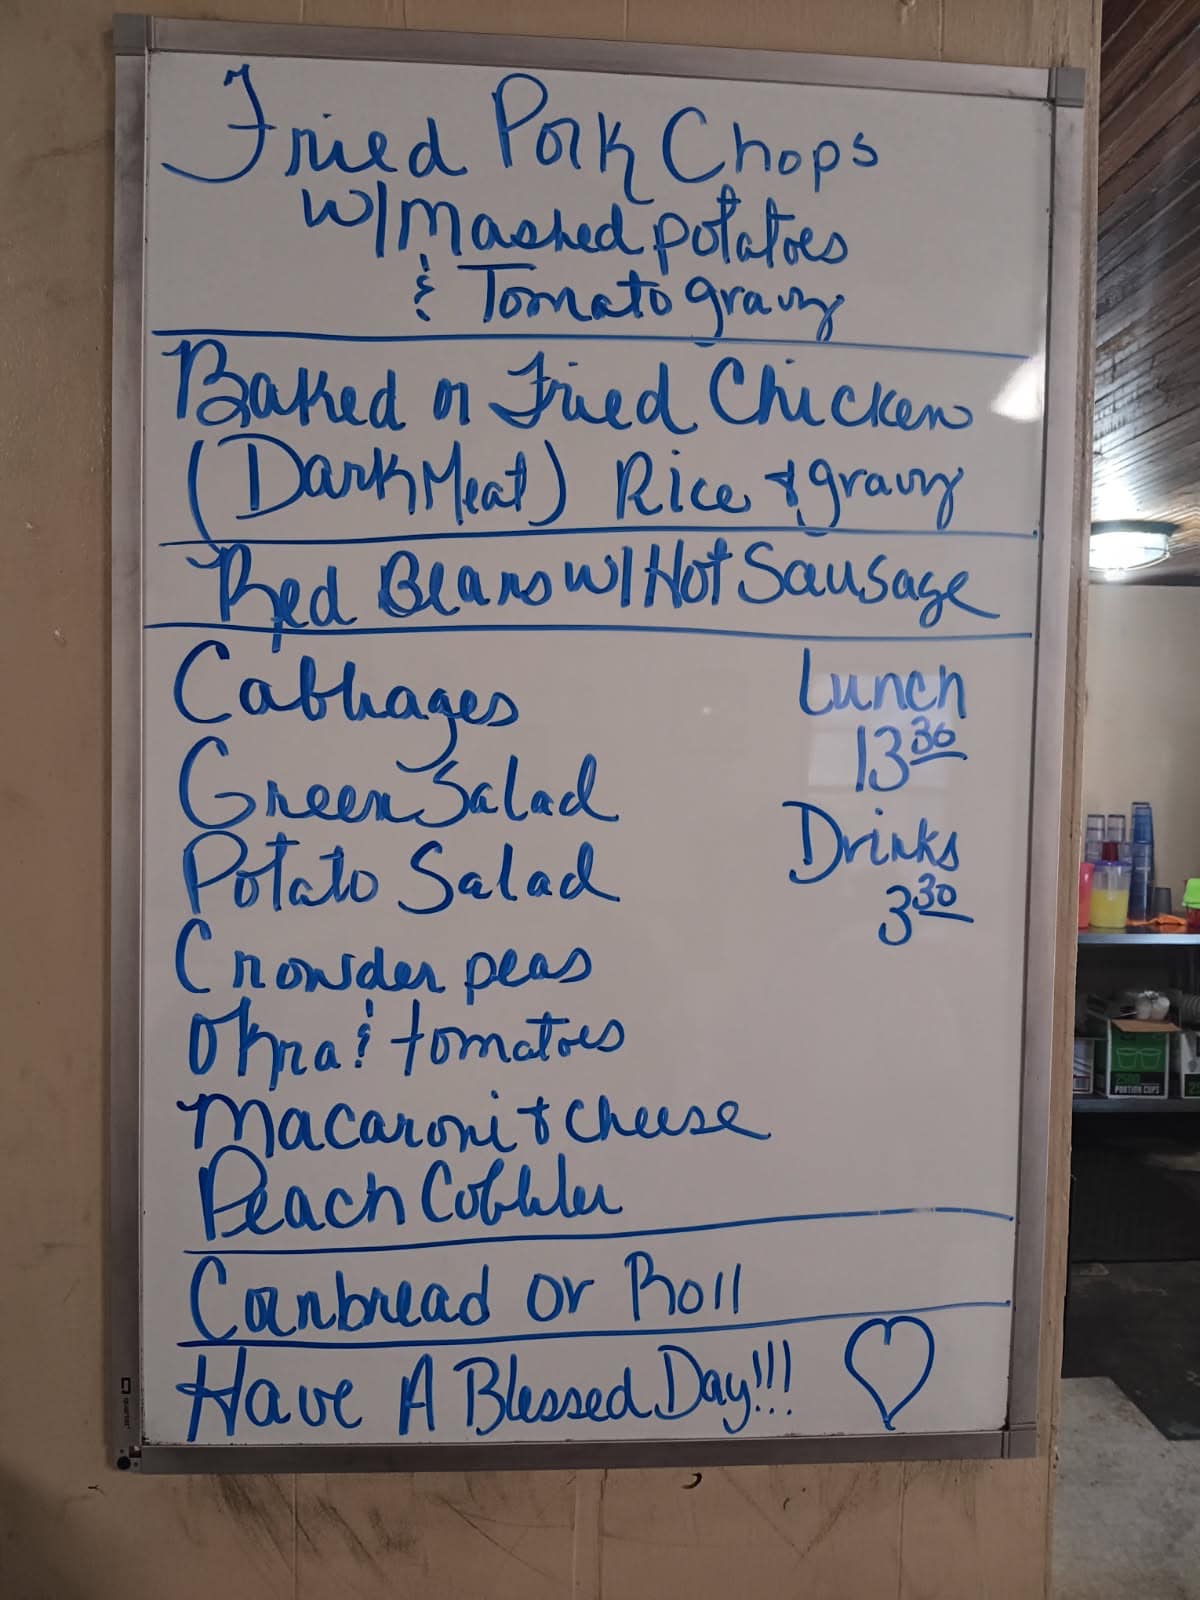 Fried Pork Chops
w/Mashed potatoes
& Tomato gravy
Baked or Fried Chicken
(Dark Meat) Rice & gravy
Red Beans w/Hot Sausage
Cabbages
Green Salad
Potato Salad
Crowder peas
Okra & tomatoes
Macaroni & Cheese
Peach Cobbler
Lunch
13 30
Drinks
3 30
Cornbread or Roll
Have A Blessed Day!!!
2500
PORTION CUPS